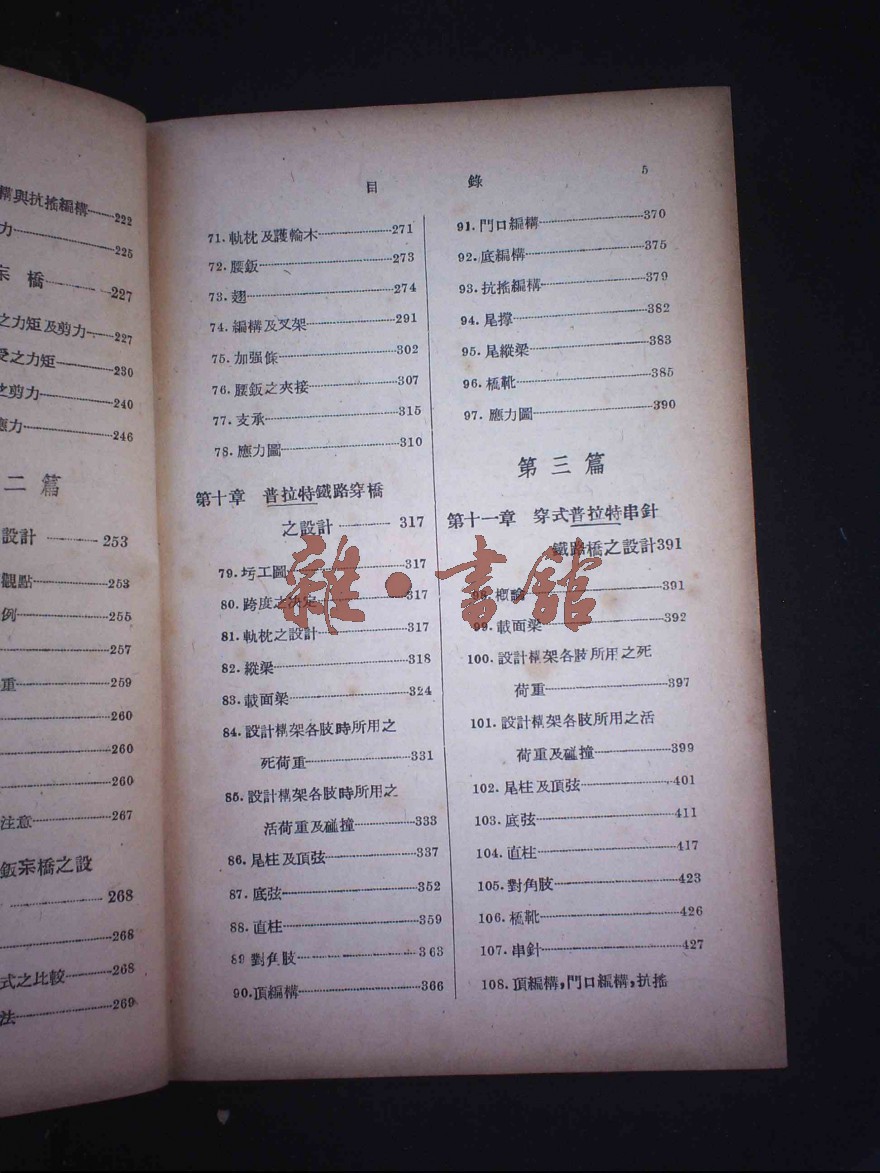 構與抗搖編構 222
力 225
橋 227
之力矩及剪力 227
受之力矩 230
之剪力 240
應力 246
二篇
設計 253
觀點 253
例 255
257
重 259
260
260
260
注意 267
鈑梁橋之設
268
268
式之比較 268
法 269
目錄 5
71. 軌枕及護輪木 271
72. 腰鈑 273
73. 翅 274
74. 編構及叉架 291
75. 加强條 302
76. 腰鈑之夾接 307
77. 支承 315
78. 應力圖 310
第十章 普拉特鐵路穿橋
之設計 317
79. 圬工圖 317
80. 跨度之决定 317
81. 軌枕之設計 317
82. 縱梁 318
83. 載面梁 324
84. 設計構架各肢時所用之
死荷重 331
85. 設計構架各肢時所用之
活荷重及碰撞 333
86. 尾柱及頂弦 337
87. 底弦 352
88. 直柱 359
89 對角肢 363
90. 頂編構 366
91. 門口編構 370
92. 底編構 375
93. 抗搖編構 379
94. 尾撐 382
95. 尾縱梁 383
96. 橋靴 385
97. 應力圖 390
第三篇
第十一章 穿式普拉特串針
鐵路橋之設計 391
98. 概論 391
99. 載面梁 392
100. 設計構架各肢所用之死
荷重 397
101. 設計構架各肢所用之活
荷重及碰撞 399
102. 尾柱及頂弦 401
103. 底弦 411
104. 直柱 417
105. 對角肢 423
106. 橋靴 426
107. 串針 427
108. 頂編構,門口編構,抗搖
雜·書館